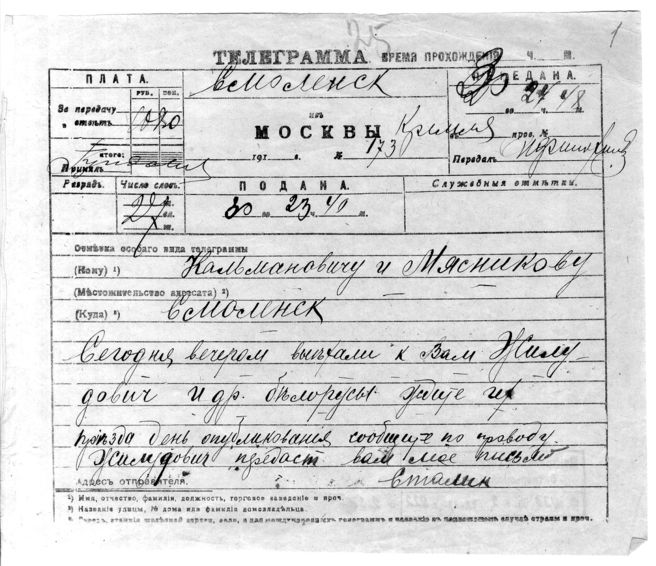 25
1
ТЕЛЕГРАММА ВРЕМЯ ПРОХОЖДЕНІЯ ч. м.
ПЛАТА.
РУБ. КОП.
Смоленск
ПЕРЕДАНА.
30 24 48
го ч. м.
За передачу
" отвѣтъ
изъ
МОСКВЫ
191 г. № 173
по пров. №
Передалъ
ИТОГО:
Принялъ
Разрядъ.
Число словъ.
ПОДАНА.
30 го 23 ч. 40 м.
Служебныя отмѣтки.
27
Отмѣтка особаго вида телеграммы
(Кому) ¹) Кальмановичу и Мясникову
(Мѣстожительство адресата) ²)
(Куда) ³) Смоленск
Сегодня вечером выѣхали к Вам Жилу-
дович и др. бѣлорусы ждите их
приѣзда день опубликования сообщите по проводу.
Жилудович передаст вам мое письмо
Сталин
Адресъ отправителя.
¹) Имя, отчество, фамилія, должность, торговое заведеніе и проч.
²) Названіе улицы, № дома или фамилія домовладѣльца.